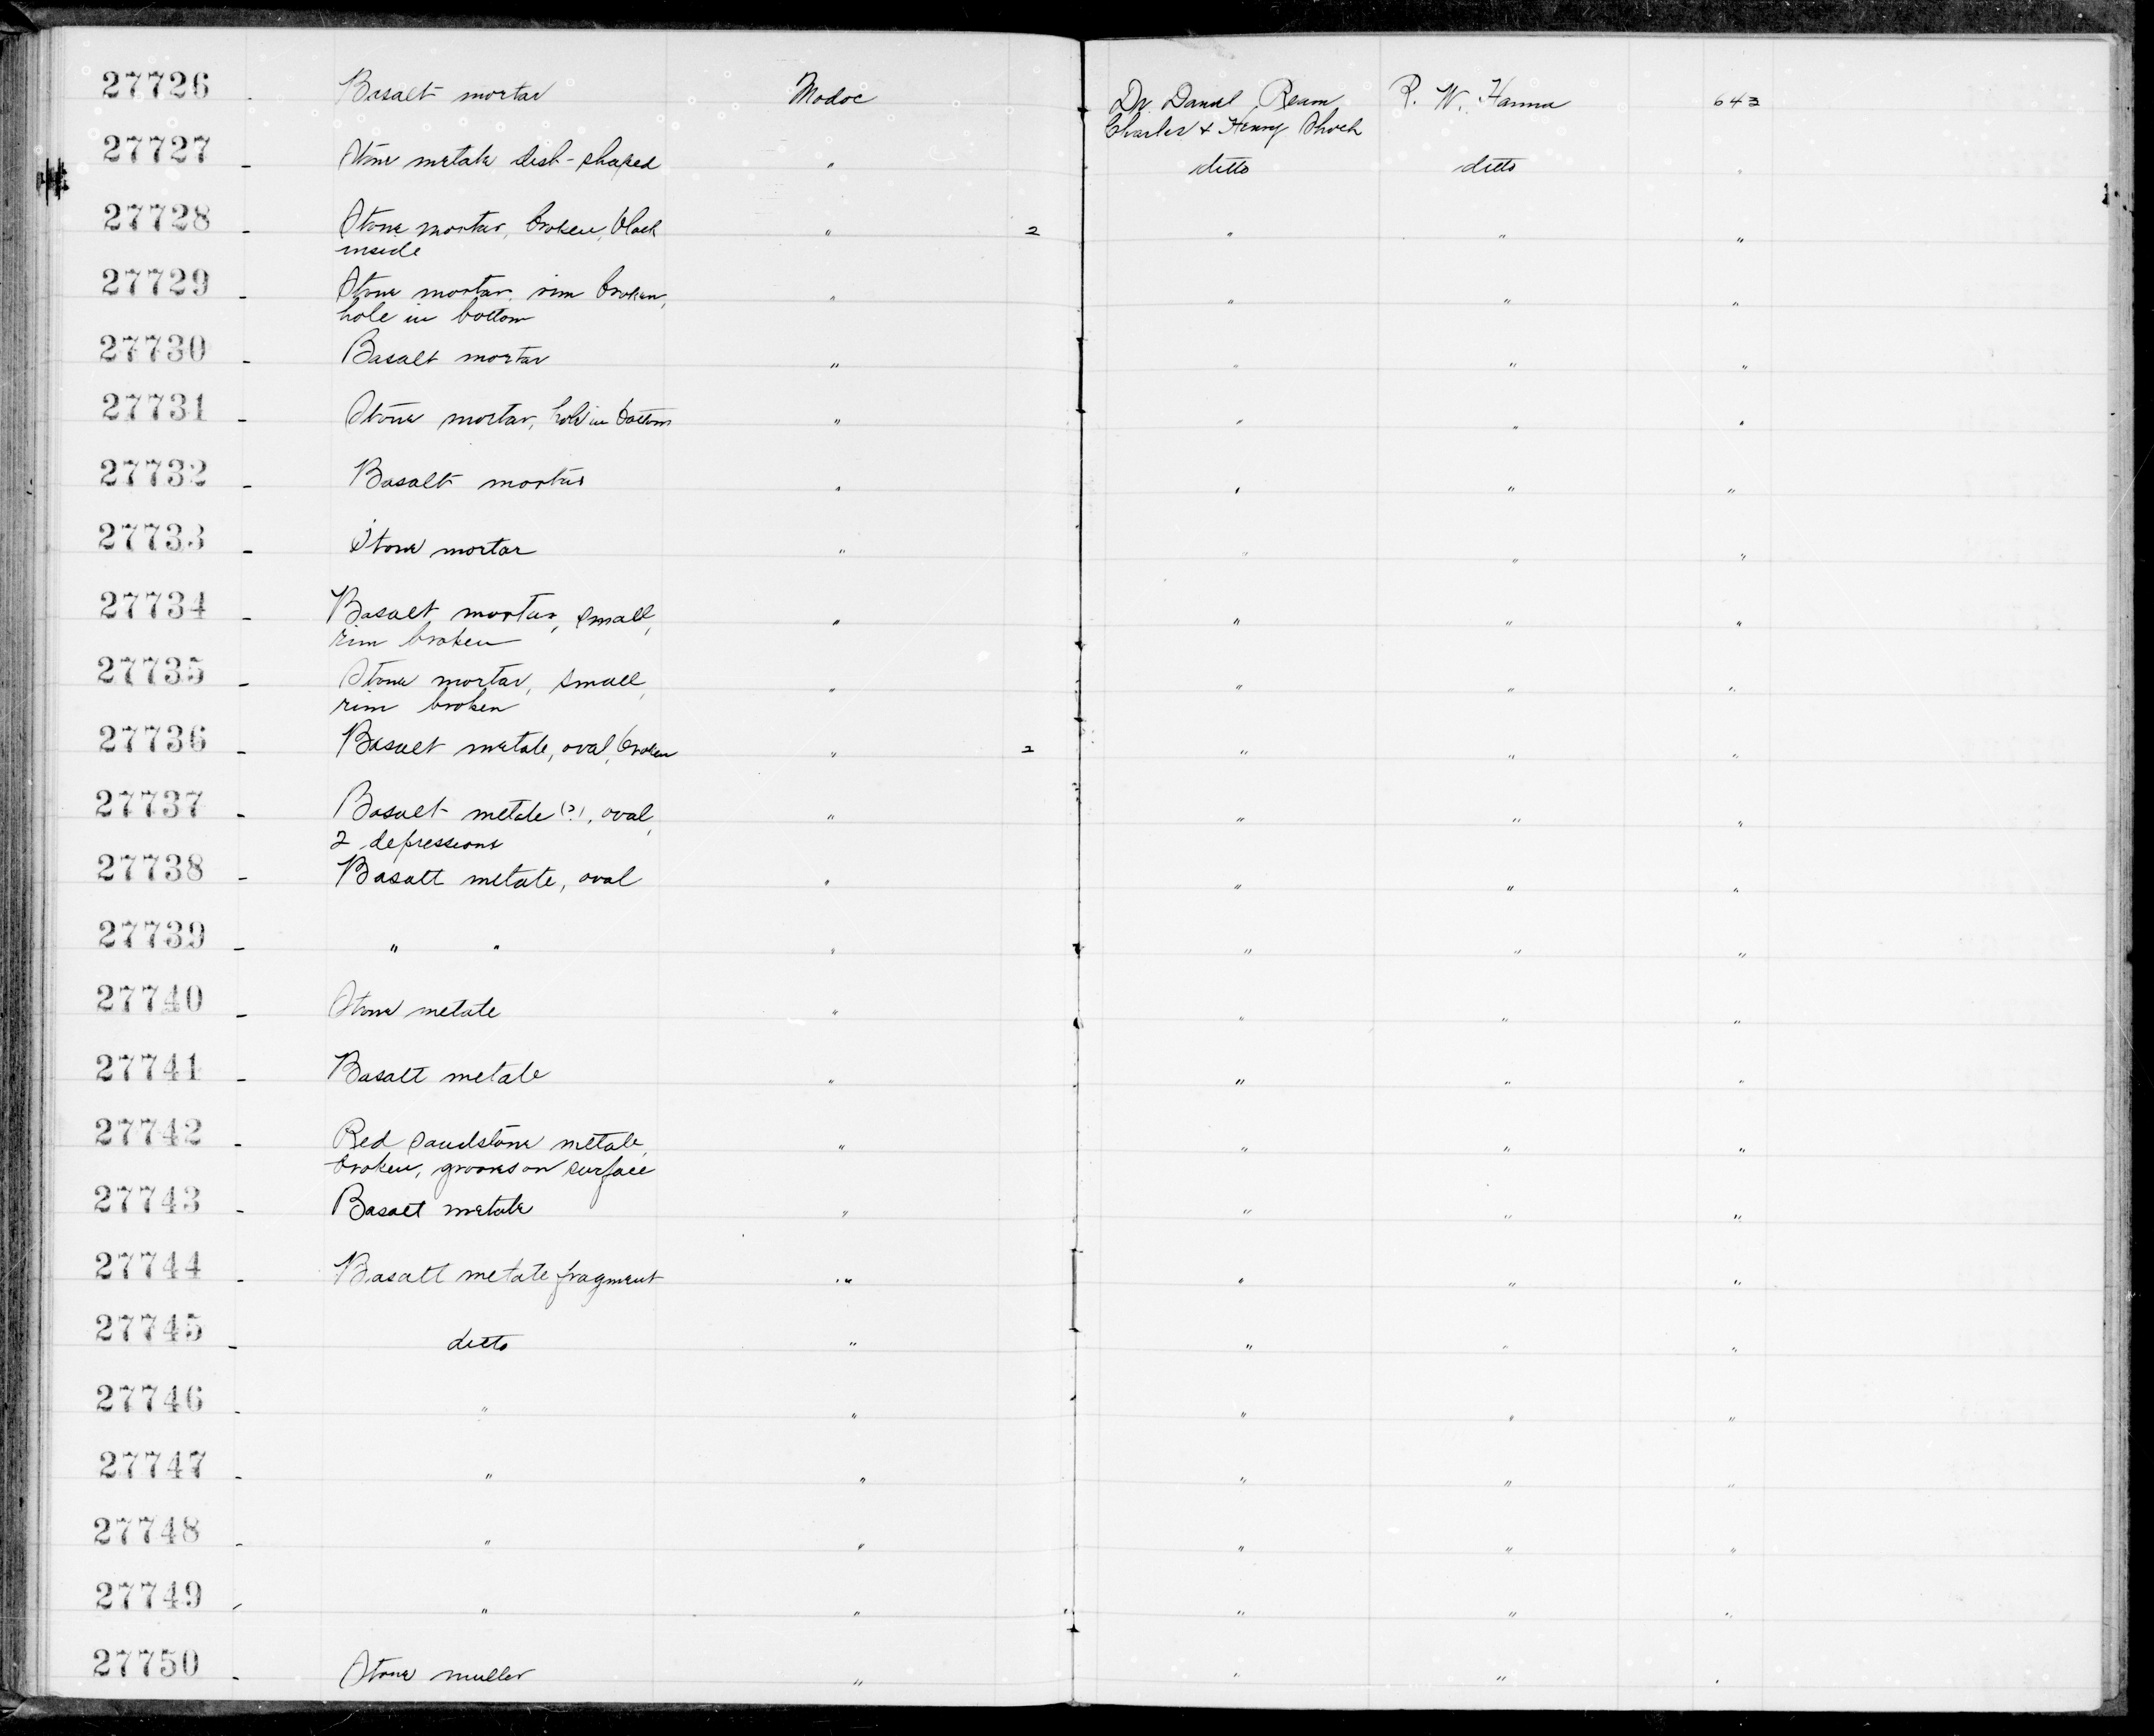 27726 - Basalt mortar Modoc Dr. Daniel Ream R. W. Hanna 643
Charles & Henry
27727 - Stone metate dish-shaped " ditto ditto "
27728 - Stone mortar, broken, black " 2 " " "
inside
27729 - Stone mortar, rim broken, " " " "
hole in bottom
27730 - Basalt mortar " " " "
27731 - Stone mortar, hole in bottom " " " "
27732 - Basalt mortar " " " "
27733 - Stone mortar " " " "
27734 - Basalt mortar, small, " " " "
rim broken
27735 - Stone mortar, small, " " " "
rim broken
27736 - Basalt metate, oval, broken " 2 " " "
27737 - Basalt metate (?), oval, " " " "
2 depressions
27738 - Basalt metate, oval " " " "
27739 - " " " " " "
27740 - Stone metate " " " "
27741 - Basalt metate " " " "
27742 - Red sandstone metate, " " " "
broken, grooves on surface
27743 - Basalt metate " " " "
27744 - Basalt metate fragment " " " "
27745 - ditto " " " "
27746 - " " " " "
27747 - " " " " "
27748 - " " " " "
27749 - " " " " "
27750 - Stone muller " " " "